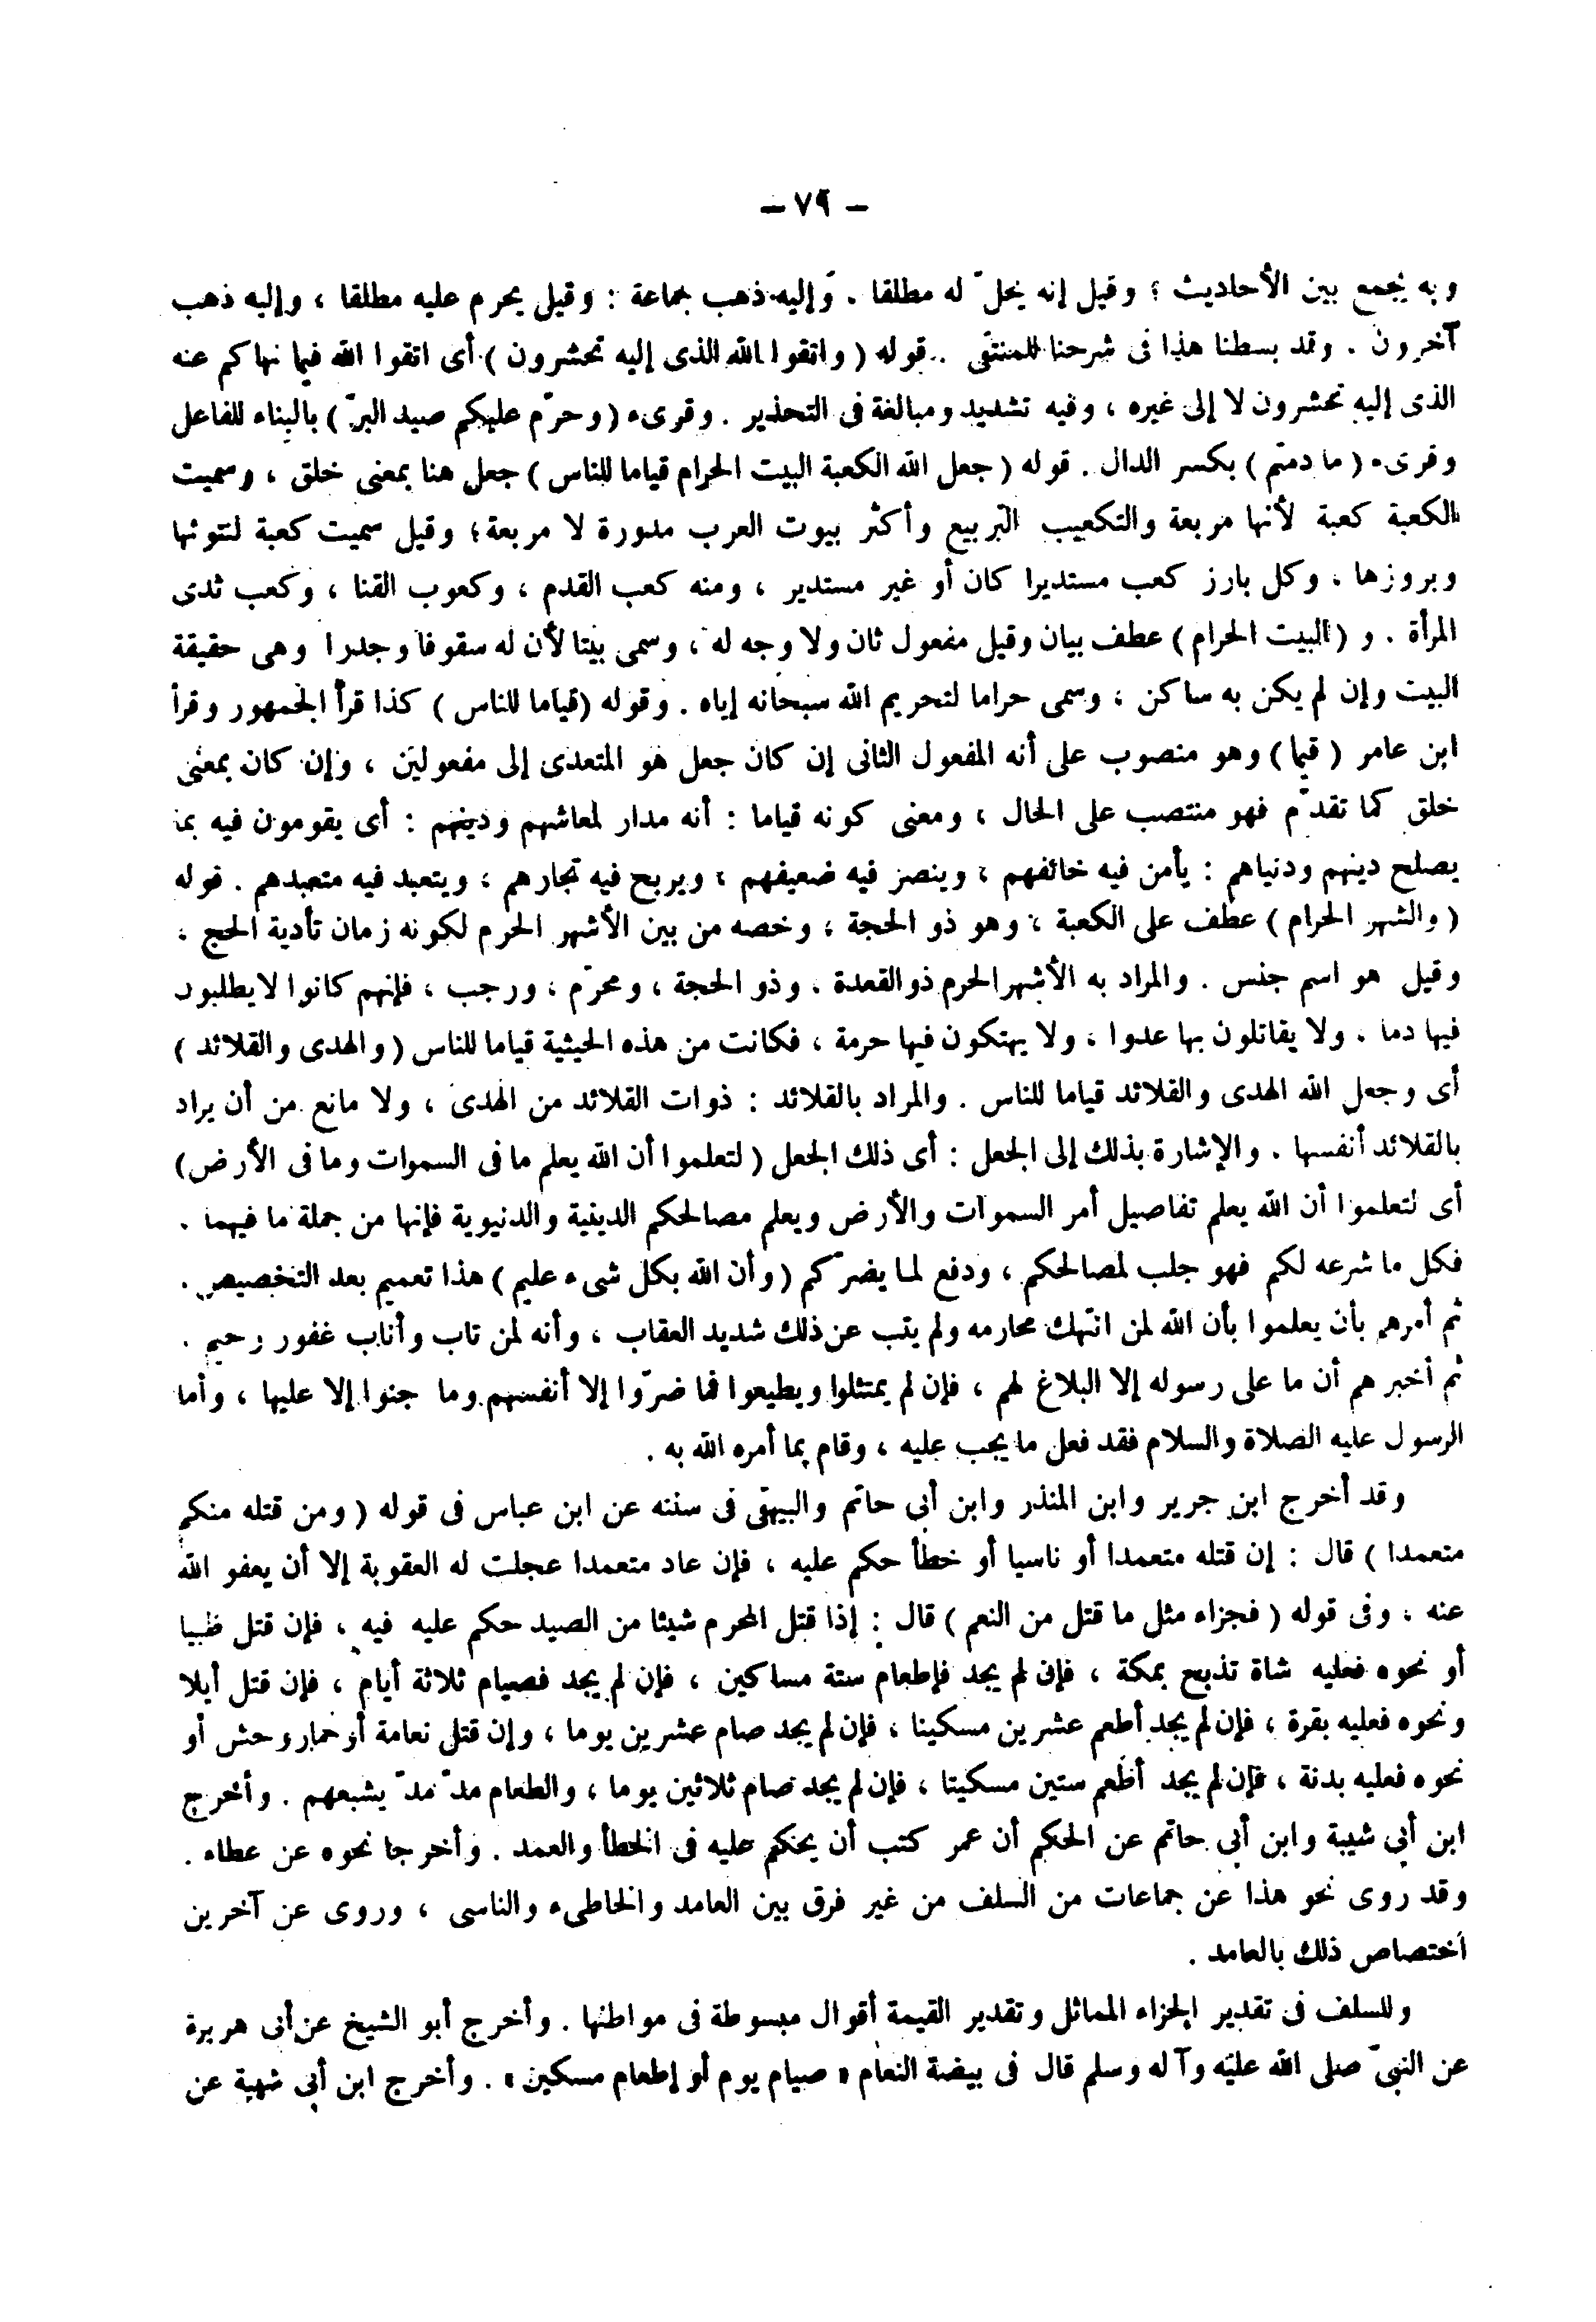 — ٧٩ —
وبه يجمع بين الأحاديث ؛ وقيل إنه يحلّ له مطلقا . وإليه ذهب جماعة : وقيل يحرم عليه مطلقا ، وإليه ذهب
آخرون . وقد بسطنا هذا فى شرحنا للمنتقى .. قوله ( واتقوا الله الذى إليه تحشرون ) أى اتقوا الله فيما نهاكم عنه
الذى إليه تحشرون لا إلى غيره ، وفيه تشديد ومبالغة فى التحذير . وقرىء ( وحرّم عليكم صيد البرّ ) بالبناء للفاعل
وقرىء ( ما دمتم ) بكسر الدال . قوله ( جعل الله الكعبة البيت الحرام قياما للناس ) جعل هنا بمعنى خلق ، وسميت
الكعبة كعبة لأنها مربعة والتكعيب التربيع وأكثر بيوت العرب مدورة لا مربعة ؛ وقيل سميت كعبة لنتوئها
وبروزها ، وكل بارز كعب مستديرا كان أو غير مستدير ، ومنه كعب القدم ، وكعوب القنا ، وكعب ثدى
المرأة . و ( البيت الحرام ) عطف بيان وقيل مفعول ثان ولا وجه له ، وسمى بيتا لأن له سقوفا وجدرا وهى حقيقة
البيت وإن لم يكن به ساكن ، وسمى حراما لتحريم الله سبحانه إياه . وقوله ( قياما للناس ) كذا قرأ الجمهور وقرأ
ابن عامر ( قيما ) وهو منصوب على أنه المفعول الثانى إن كان جعل هو المتعدى إلى مفعولين ، وإن كان بمعنى
خلق كما تقدّم فهو منتصب على الحال ، ومعنى كونه قياما : أنه مدار لمعاشهم ودينهم : أى يقومون فيه بما
يصلح دينهم ودنياهم : يأمن فيه خائفهم ، وينصر فيه ضعيفهم ، ويربح فيه تجارهم ، ويتعبد فيه متعبدهم . قوله
( والشهر الحرام ) عطف على الكعبة ، وهو ذو الحجة ، وخصه من بين الأشهر الحرم لكونه زمان تأدية الحج ،
وقيل هو اسم جنس . والمراد به الأشهر الحرم ذو القعدة ، وذو الحجة ، ومحرّم ، ورجب ، فإنهم كانوا لا يطلبون
فيها دما ، ولا يقاتلون بها عدوا ، ولا يهتكون فيها حرمة ، فكانت من هذه الحيثية قياما للناس ( والهدى والقلائد )
أى وجعل الله الهدى والقلائد قياما للناس . والمراد بالقلائد : ذوات القلائد من الهدى ، ولا مانع من أن يراد
بالقلائد أنفسها . والإشارة بذلك إلى الجعل : أى ذلك الجعل ( لتعلموا أن الله يعلم ما فى السموات وما فى الأرض )
أى لتعلموا أن الله يعلم تفاصيل أمر السموات والأرض ويعلم مصالحكم الدينية والدنيوية فإنها من جملة ما فيهما .
فكل ما شرعه لكم فهو جلب لمصالحكم ، ودفع لما يضرّكم ( وأن الله بكل شىء عليم ) هذا تعميم بعد التخصيص .
ثم أمرهم بأن يعلموا بأن الله لمن انتهك محارمه ولم يتب عن ذلك شديد العقاب ، وأنه لمن تاب وأناب غفور رحيم .
ثم أخبرهم أن ما على رسوله إلا البلاغ لهم ، فإن لم يمتثلوا ويطيعوا فما ضرّوا إلا أنفسهم وما جنوا إلا عليها ، وأما
الرسول عليه الصلاة والسلام فقد فعل ما يجب عليه ، وقام بما أمره الله به .
وقد أخرج ابن جرير وابن المنذر وابن أبى حاتم والبيهقى فى سننه عن ابن عباس فى قوله ( ومن قتله منكم
متعمدا ) قال : إن قتله متعمدا أو ناسيا أو خطأ حكم عليه ، فإن عاد متعمدا عجلت له العقوبة إلا أن يعفو الله
عنه ، وفى قوله ( فجزاء مثل ما قتل من النعم ) قال : إذا قتل المحرم شيئا من الصيد حكم عليه فيه ، فإن قتل ظبيا
أو نحوه فعليه شاة تذبح بمكة ، فإن لم يجد فإطعام ستة مساكين ، فإن لم يجد فصيام ثلاثة أيام ، فإن قتل أيلا
ونحوه فعليه بقرة ، فإن لم يجد أطعم عشرين مسكينا ، فإن لم يجد صام عشرين يوما ، وإن قتل نعامة أو حمار وحش أو
نحوه فعليه بدنة ، فإن لم يجد أطعم ستين مسكينا ، فإن لم يجد صام ثلاثين يوما ، والطعام مدّ مدّ يشبعهم . وأخرج
ابن أبى شيبة وابن أبى حاتم عن الحكم أن عمر كتب أن يحكم عليه فى الخطأ والعمد . وأخرجا نحوه عن عطاء .
وقد روى نحو هذا عن جماعات من السلف من غير فرق بين العامد والخاطىء والناسى ، وروى عن آخرين
اختصاص ذلك بالعامد .
وللسلف فى تقدير الجزاء المماثل وتقدير القيمة أقوال مبسوطة فى مواطنها . وأخرج أبو الشيخ عن أبى هريرة
عن النبىّ صلى الله عليه وآله وسلم قال فى بيضة النعام « صيام يوم أو إطعام مسكين » . وأخرج ابن أبى شيبة عن